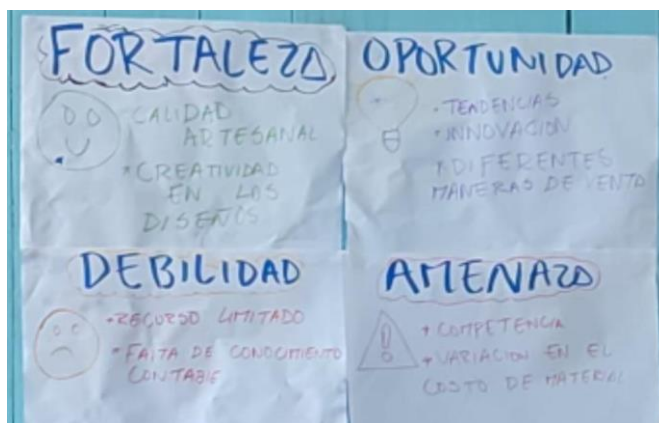 FORTALEZA
• CALIDAD
ARTESANAL
• CREATIVIDAD
EN LOS
DISEÑOS
OPORTUNIDAD
• TENDENCIAS
• INNOVACION
• DIFERENTES
MANERAS DE VENTA
DEBILIDAD
• RECURSO LIMITADO
• FALTA DE CONOCIMIENTO
CONTABLE
AMENAZA
• COMPETENCIA
• VARIACION EN EL
COSTO DE MATERIAL